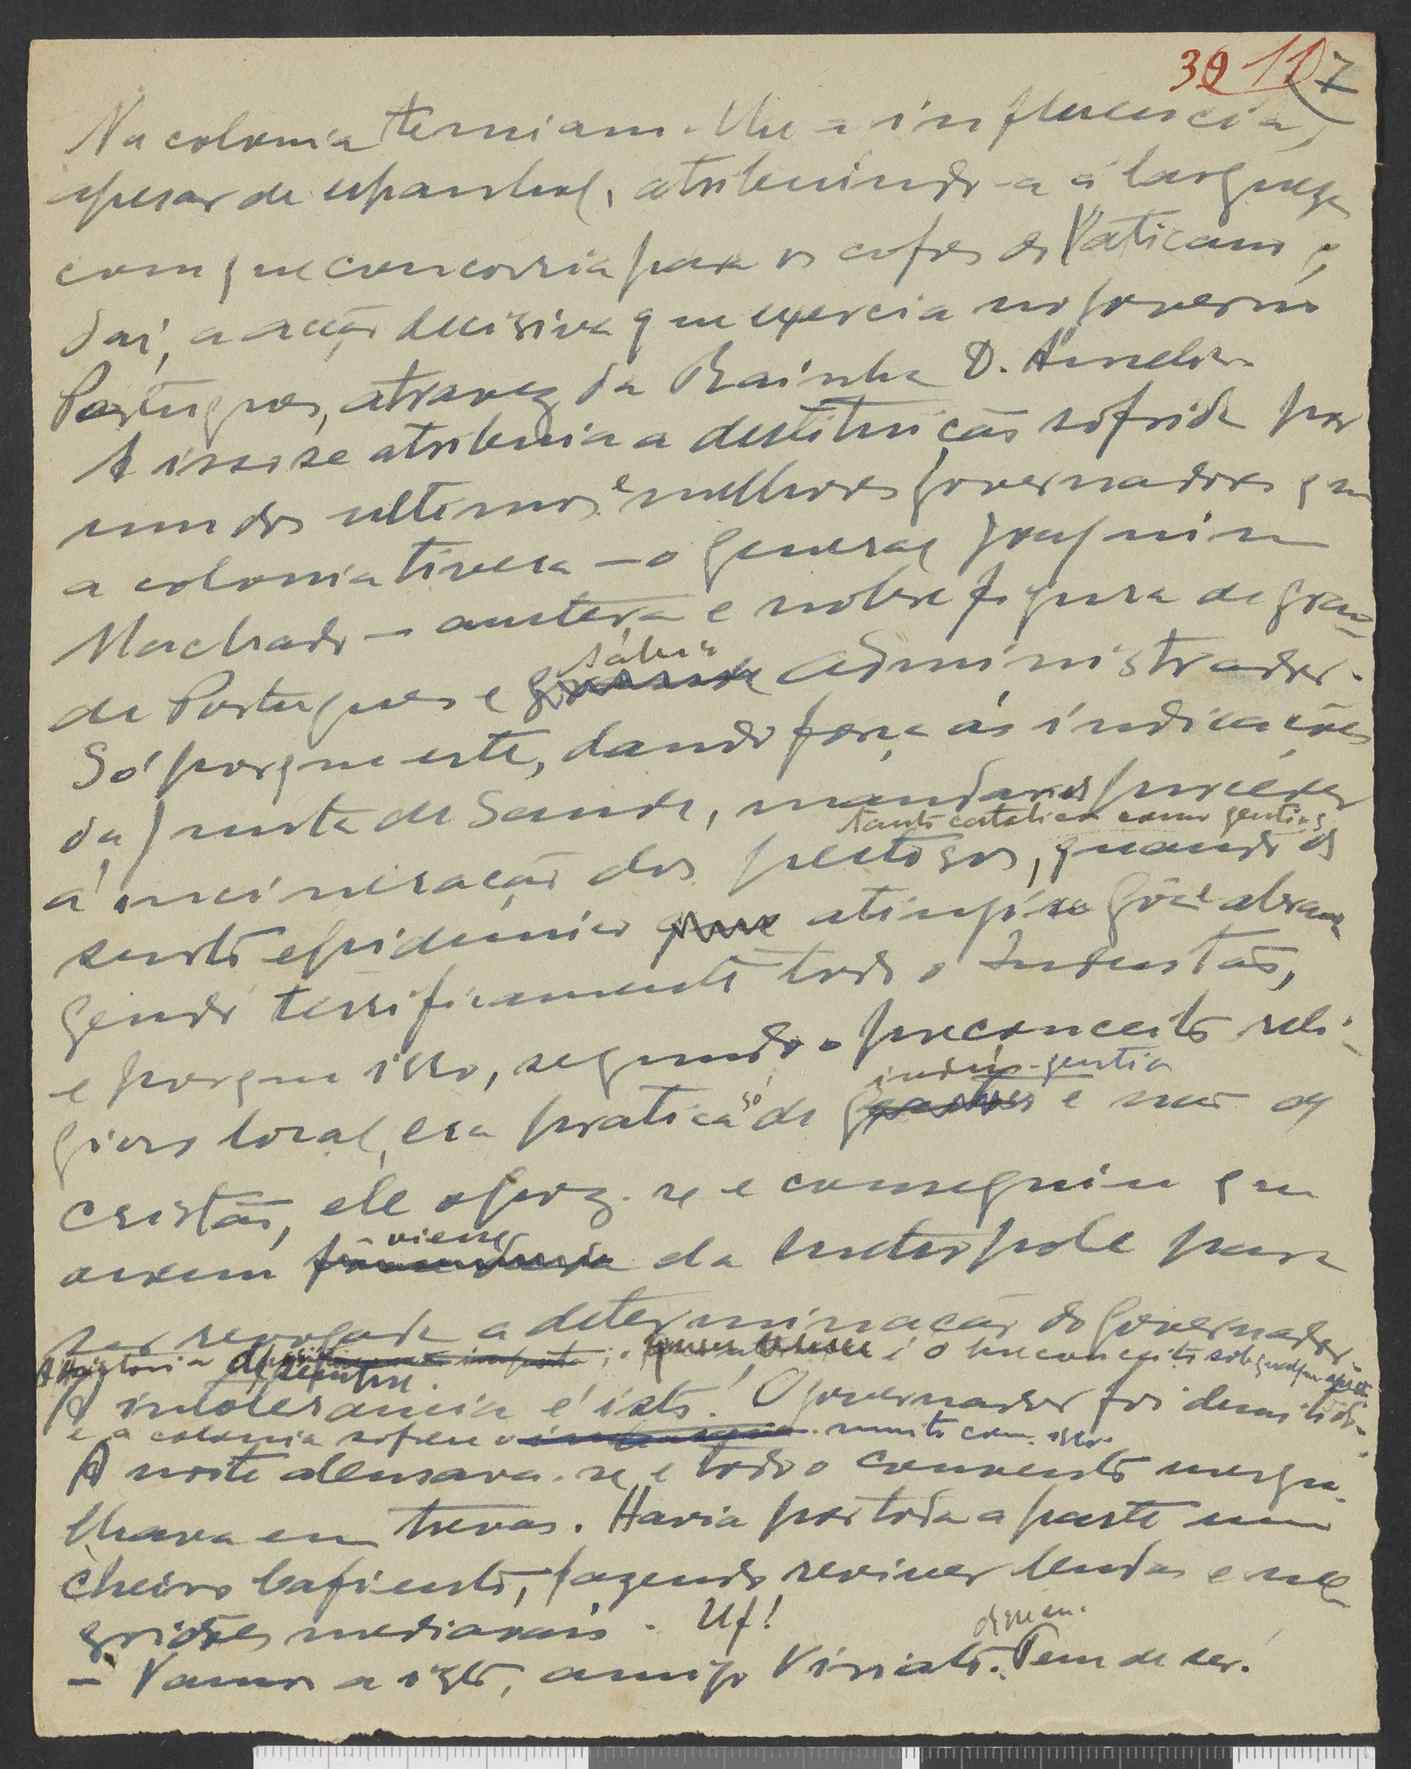 39 117
Na colonia temiam-lhe a influencia,
apesar de espanhol, atribuindo-a á largueza
com que concorria para os cofres do Vaticano e,
daí, a acção decisiva que exercia no governo
Portugues, atravez da Rainha D. Amelia.
A isso se atribuia a destituição sofrida por
um dos ultimos e melhores governadores que
a colonia tivera — o general Joaquim
Machado — austera e nobre figura de gran-
sábio
de Portugues e grande administrador.
Só porque este, dando força ás indicações
da Junta de Saude, mandara proceder
tanto catolicos como gentios
á incineração dos pestosos, quando o
surto epidémico que atingira Gôa e abran-
gendo terrificamente todo o Industão,
e porque isso, segundo o preconceito reli-
indús-gentios
gioso local, era pratica só de e não de
cristão, ele opoz-se e conseguiu que
viesse
ordem da metropole para
ser revogada a determinação do Governador.
A historia de sempre. o preconceito sob qualquer
A intolerancia é isto! O governador foi demitido
e a colonia sofreu muito com isso.
A noite adensava-se e todo o convento mergu-
lhava em trevas. Havia por toda a parte um
cheiro bafiento, fazendo reviver lendas e ne-
gridões mediavais. Uf!
disseu.
— Vamos a isto, amigo Viriato. Tem de ser.